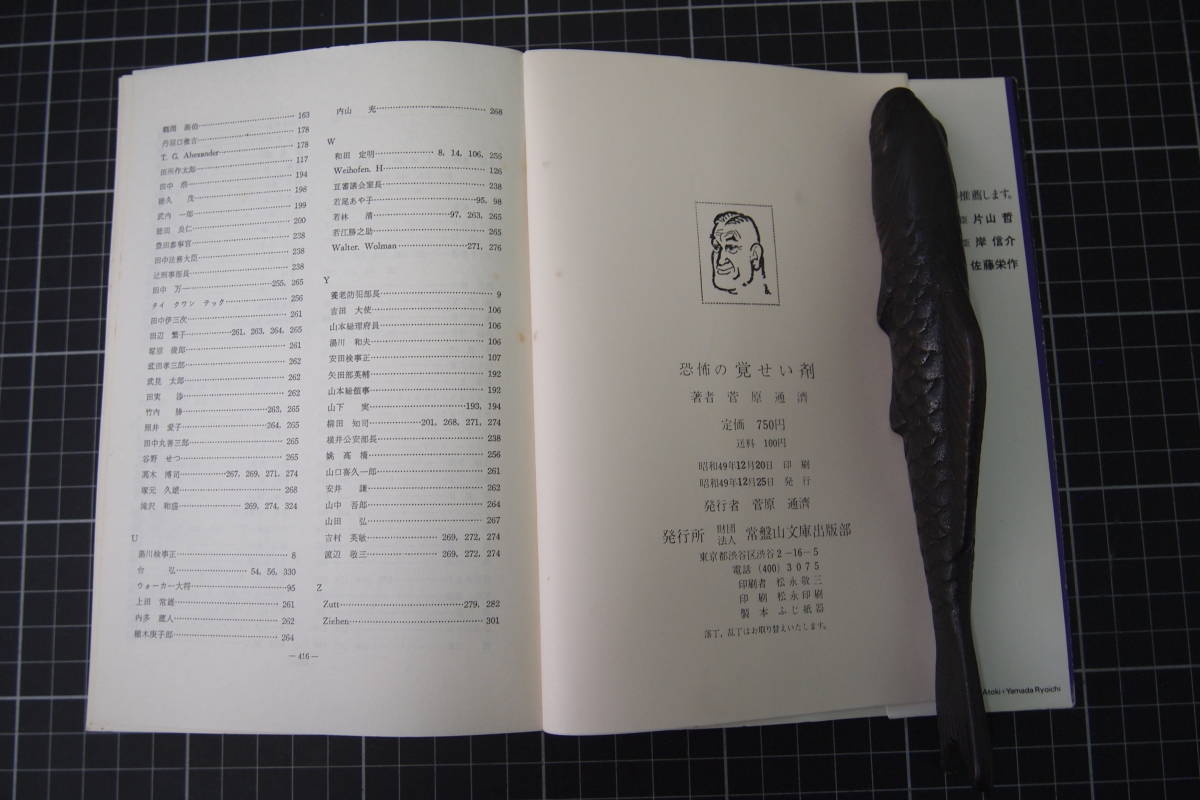 鶴岡　画伯 163
丹羽口徹吉 178
T. G. Abexander 178
田所作太郎 117
田中　恭 194
徳久　茂 198
武内　一郎 199
徳田　良仁 200
豊田参事官 238
田中法務大臣 238
辻刑事部長 238
田中　万一 255, 265
タイ　クワン　テック 256
田中伊三次 261
田辺　繁子 261, 263, 264, 265
塚原　俊郎 261
武田孝三郎 262
武見　太郎 262
田実　渉 262
竹内　勝 263, 265
照井　愛子 264, 265
田中丸善三郎 265
谷野　せつ 265
高木　博司 267, 269, 271, 274
塚元　久雄 268
滝沢　和盛 269, 274, 324
U
湯川検事正 8
台　弘 54, 56, 330
ウォーカー大将 95
上田　常雄 261
内多　蔵人 262
植木庚子郎 264
内山　充 268
W
和田　定明 8, 14, 106, 256
Weihofen. H 126
亘審議会室長 238
若尾あや子 95, 98
若林　清 97, 263, 265
若江勝之助 265
Walter. Wolman 271, 276
Y
養老防犯部長 9
吉田　大使 106
山本総理府員 106
湯川　和夫 106
安田検事正 107
矢田部英輔 192
山本総領事 192
山下　実 193, 194
柳田　知司 201, 268, 271, 274
横井公安部長 238
姚　高橋 256
山口喜久一郎 261
安井　謙 262
山中　吾郎 264
山田　弘 267
吉村　英敏 269, 272, 274
渡辺　敬三 269, 272, 274
Z
Zutt 279, 282
Ziehen 301
— 416 —
恐怖の覚せい剤
著者　菅原通濟
定価　750円
送料　100円
昭和49年12月20日　印刷
昭和49年12月25日　発行
発行者　菅原　通濟
発行所　財団法人　常盤山文庫出版部
東京都渋谷区渋谷2－16－5
電話 (400) 3075
印刷者　松永敬三
印刷　松永印刷
製本　ふじ紙器
落丁，乱丁はお取り替えいたします。
推薦します。
片山　哲
岸　信介
佐藤栄作
Atoki・Yamada Ryoichi